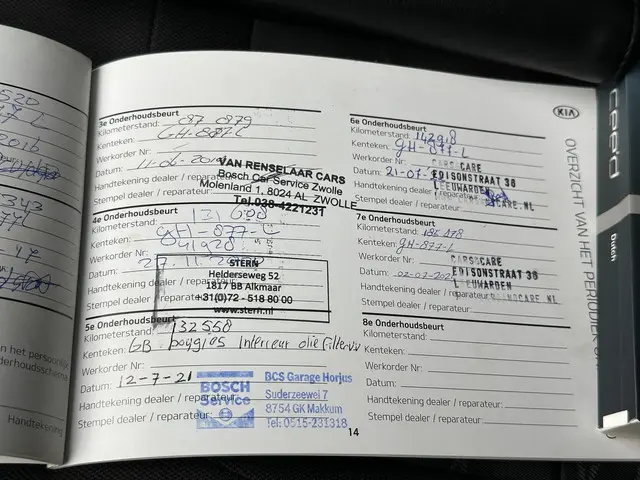 3e Onderhoudsbeurt
Kilometerstand: 087 0879
Kenteken: GH-877-L
Werkorder Nr:
Datum: 11-06-20
Handtekening dealer / reparateur:
Stempel dealer / reparateur:
VAN RENSELAAR CARS
Bosch Car Service Zwolle
Molenland 1, 8024 AL ZWOLLE
Tel.038-4221231
4e Onderhoudsbeurt
Kilometerstand: 131 608
Kenteken: GH-877-L
Werkorder Nr: 41928
Datum:
Handtekening dealer / reparateur
Stempel dealer / reparateur
STERN
Helderseweg 52
1817 BB Alkmaar
+31(0)72 - 518 80 00
www.stern.nl
5e Onderhoudsbeurt
Kilometerstand: 132558
Kenteken: GB bougies Interieur olie Filter
Werkorder Nr:
Datum: 12-7-21
Handtekening dealer / reparateur:
Stempel dealer / reparateur:
BOSCH
Service
BCS Garage Horjus
Suderzeewei 7
8754 GK Makkum
Tel: 0515-231318
6e Onderhoudsbeurt
Kilometerstand: 142918
Kenteken: GH-877-L
Werkorder Nr:
Datum: 21-07-
Handtekening dealer / reparateur:
Stempel dealer / reparateur:
CARSCARE
EDISONSTRAAT 36
LEEUWARDEN
CARE.NL
7e Onderhoudsbeurt
Kilometerstand:
Kenteken: GH-877-L
Werkorder Nr:
Datum: 02-02-202
Handtekening dealer / reparateur:
Stempel dealer / reparateur:
CARSCARE
EDISONSTRAAT 36
LEEUWARDEN
8e Onderhoudsbeurt
Kilometerstand:
Kenteken:
Werkorder Nr:
Datum:
Handtekening dealer / reparateur:
Stempel dealer / reparateur:
14
KIA
OVERZICHT VAN HET PERIODIEK
cee'd
Dutch
5520
2016
343
47
en het persoonlijk
derhoudsschema
Handtekening